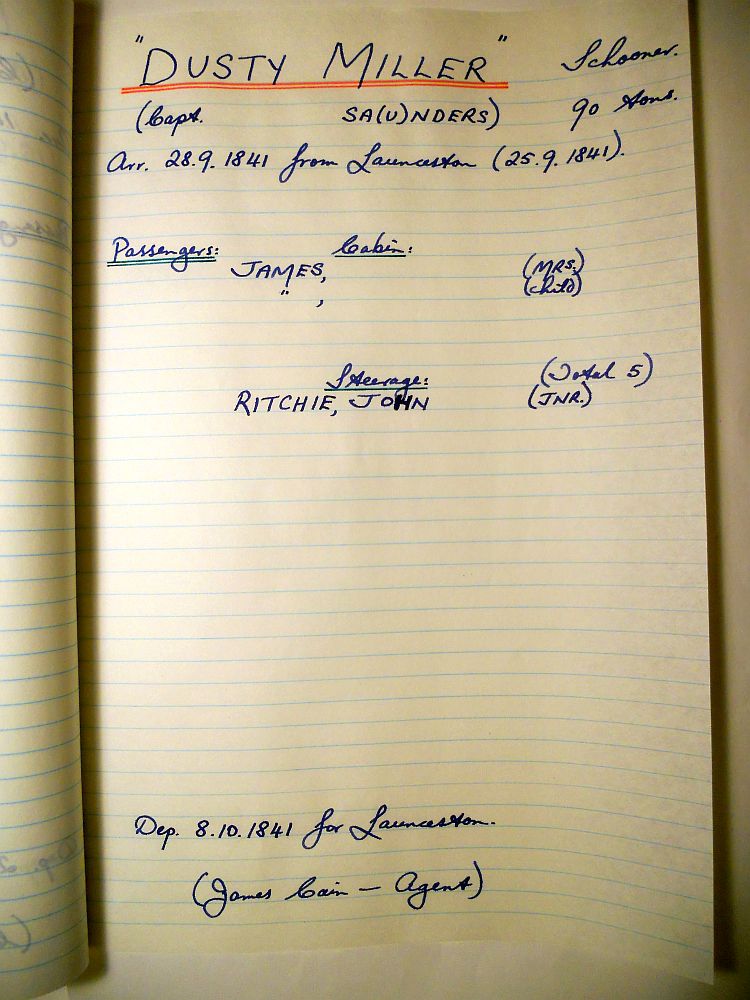 "DUSTY MILLER" Schooner.
(Capt. SA(U)NDERS) 90 tons.
Arr. 28.9.1841 from Launceston (25.9.1841).
Passengers: Cabin:
JAMES, (MRS.)
" , (child)
Steerage: (Total 5)
RITCHIE, JOHN (JNR.)
Dep. 8.10.1841 for Launceston.
(James Cain — Agent)